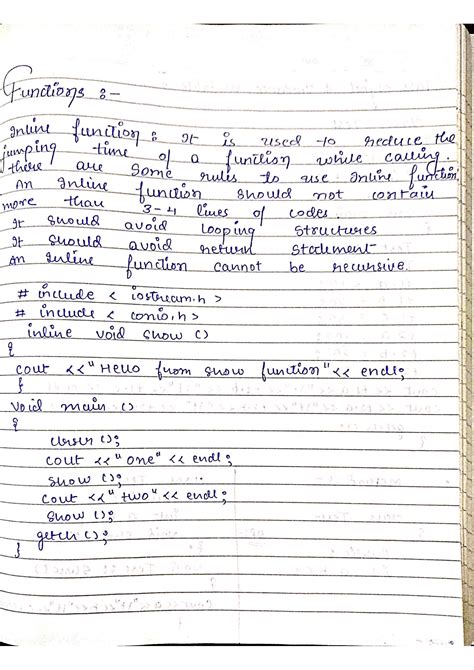 Functions :-
Inline function : It is used to reduce the
jumping time of a function while calling.
there are some rules to use Inline function.
An Inline function should not contain
more than 3-4 lines of codes.
It should avoid looping structures
It should avoid return statement
An Inline function cannot be recursive.
# include < iostream.h >
# include < conio.h >
inline void show ()
{
cout <<"Hello from show function"<< endl;
}
void main ()
{
clrscr ();
cout <<"one" << endl;
show ();
cout <<"two" << endl;
show ();
getch ();
}